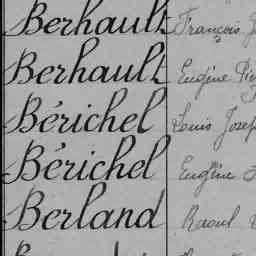 Berhault François
Berhault Eugène
Bérichel Louis
Bérichel Eugène
Berland Raoul